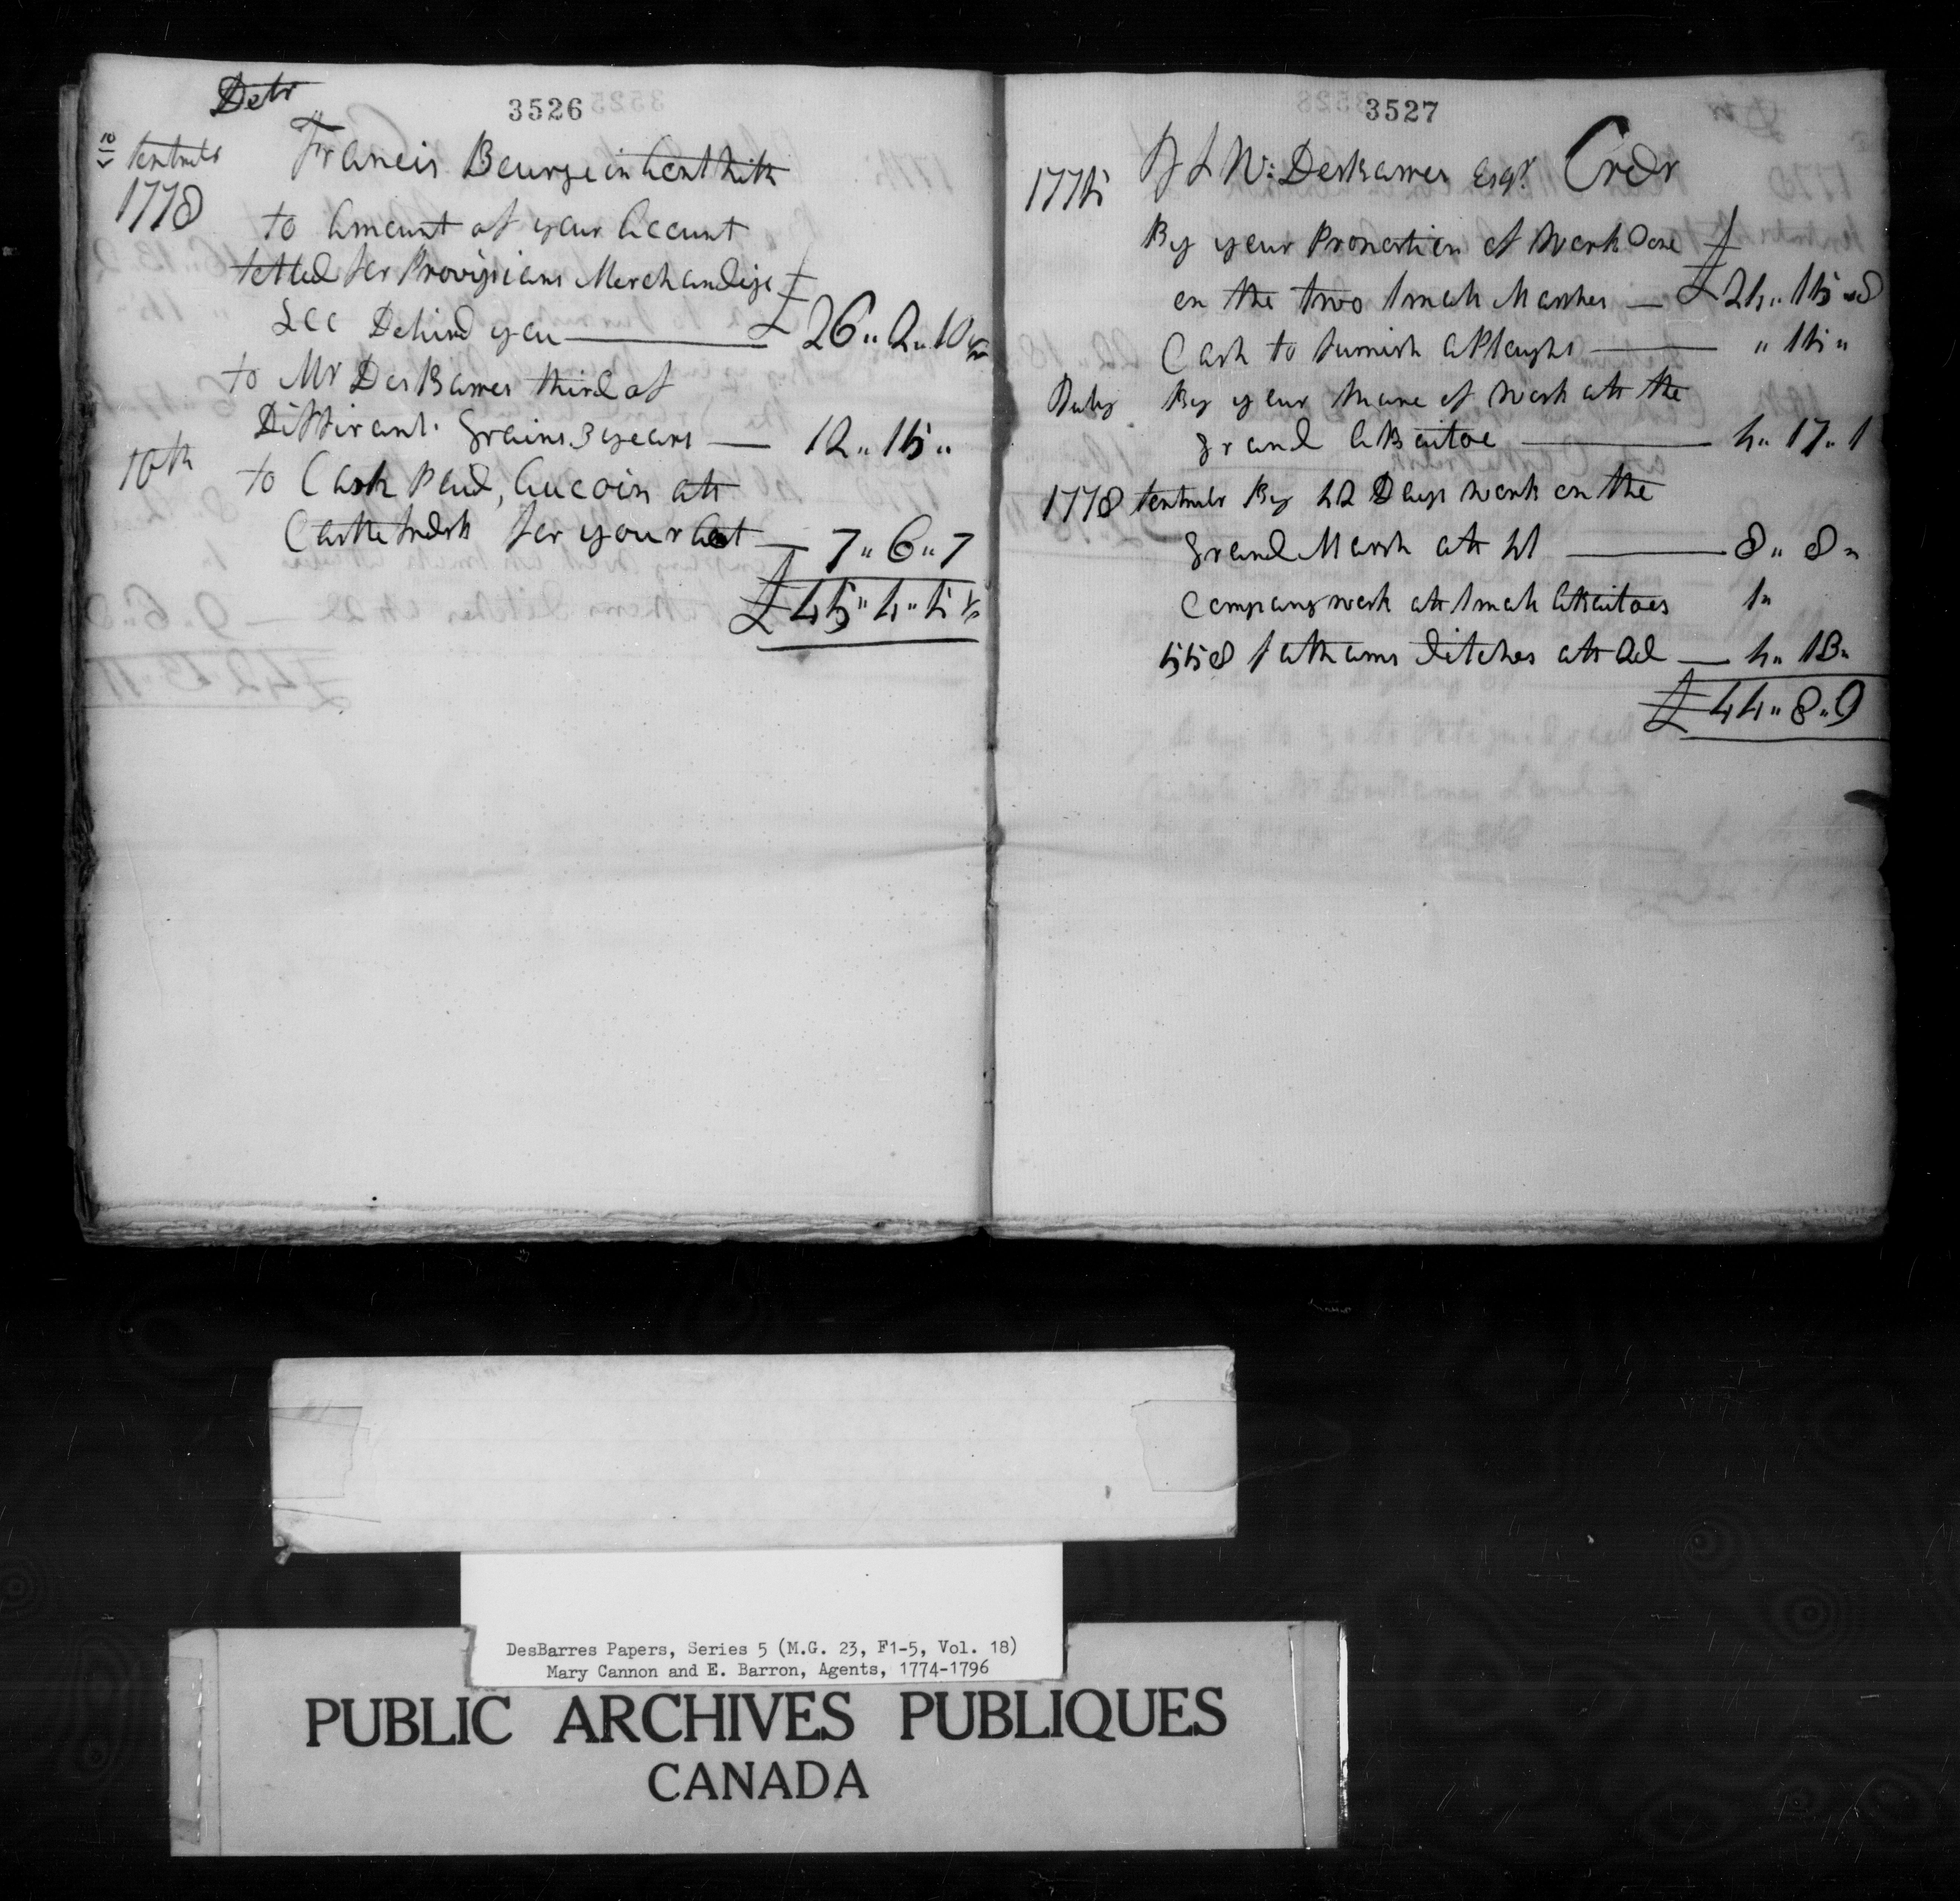 Detr
3526
10 Septembr Francis Bourgeois in Acct With
1778
to Amount of your Account
settled for Provisions Merchandize
See Behind you — £ 26,, 2,, 10 ½
to Mr DesBarres third of
Diffirant Grains 3 years — 12,, 15,,
10th to Cash Paid, Aucoin att
for your Acct — 7,, 6,, 7
£45,, 4,, 5 ½
3527
1775 J F W: DesBarres Esqr. Credr
By your Proportion of Work Done
on the two Small Marshes — £24,, 15,, 8
Cash to furnish a Plought — ,, 15 ,,
July By your Share of Work att the
grand Abaitoe — 4,, 17,, 1
1778 Septembr By 42 Days Work on the
Grand Marsh att 4/ — 8,, 8,,
Company work att Small Abaitoes 1,,
558 fathoms ditches att 2d — 4,, 13,,
£44,, 8,, 9
DesBarres Papers, Series 5 (M.G. 23, F1-5, Vol. 18)
Mary Cannon and E. Barron, Agents, 1774-1796
PUBLIC ARCHIVES PUBLIQUES
CANADA